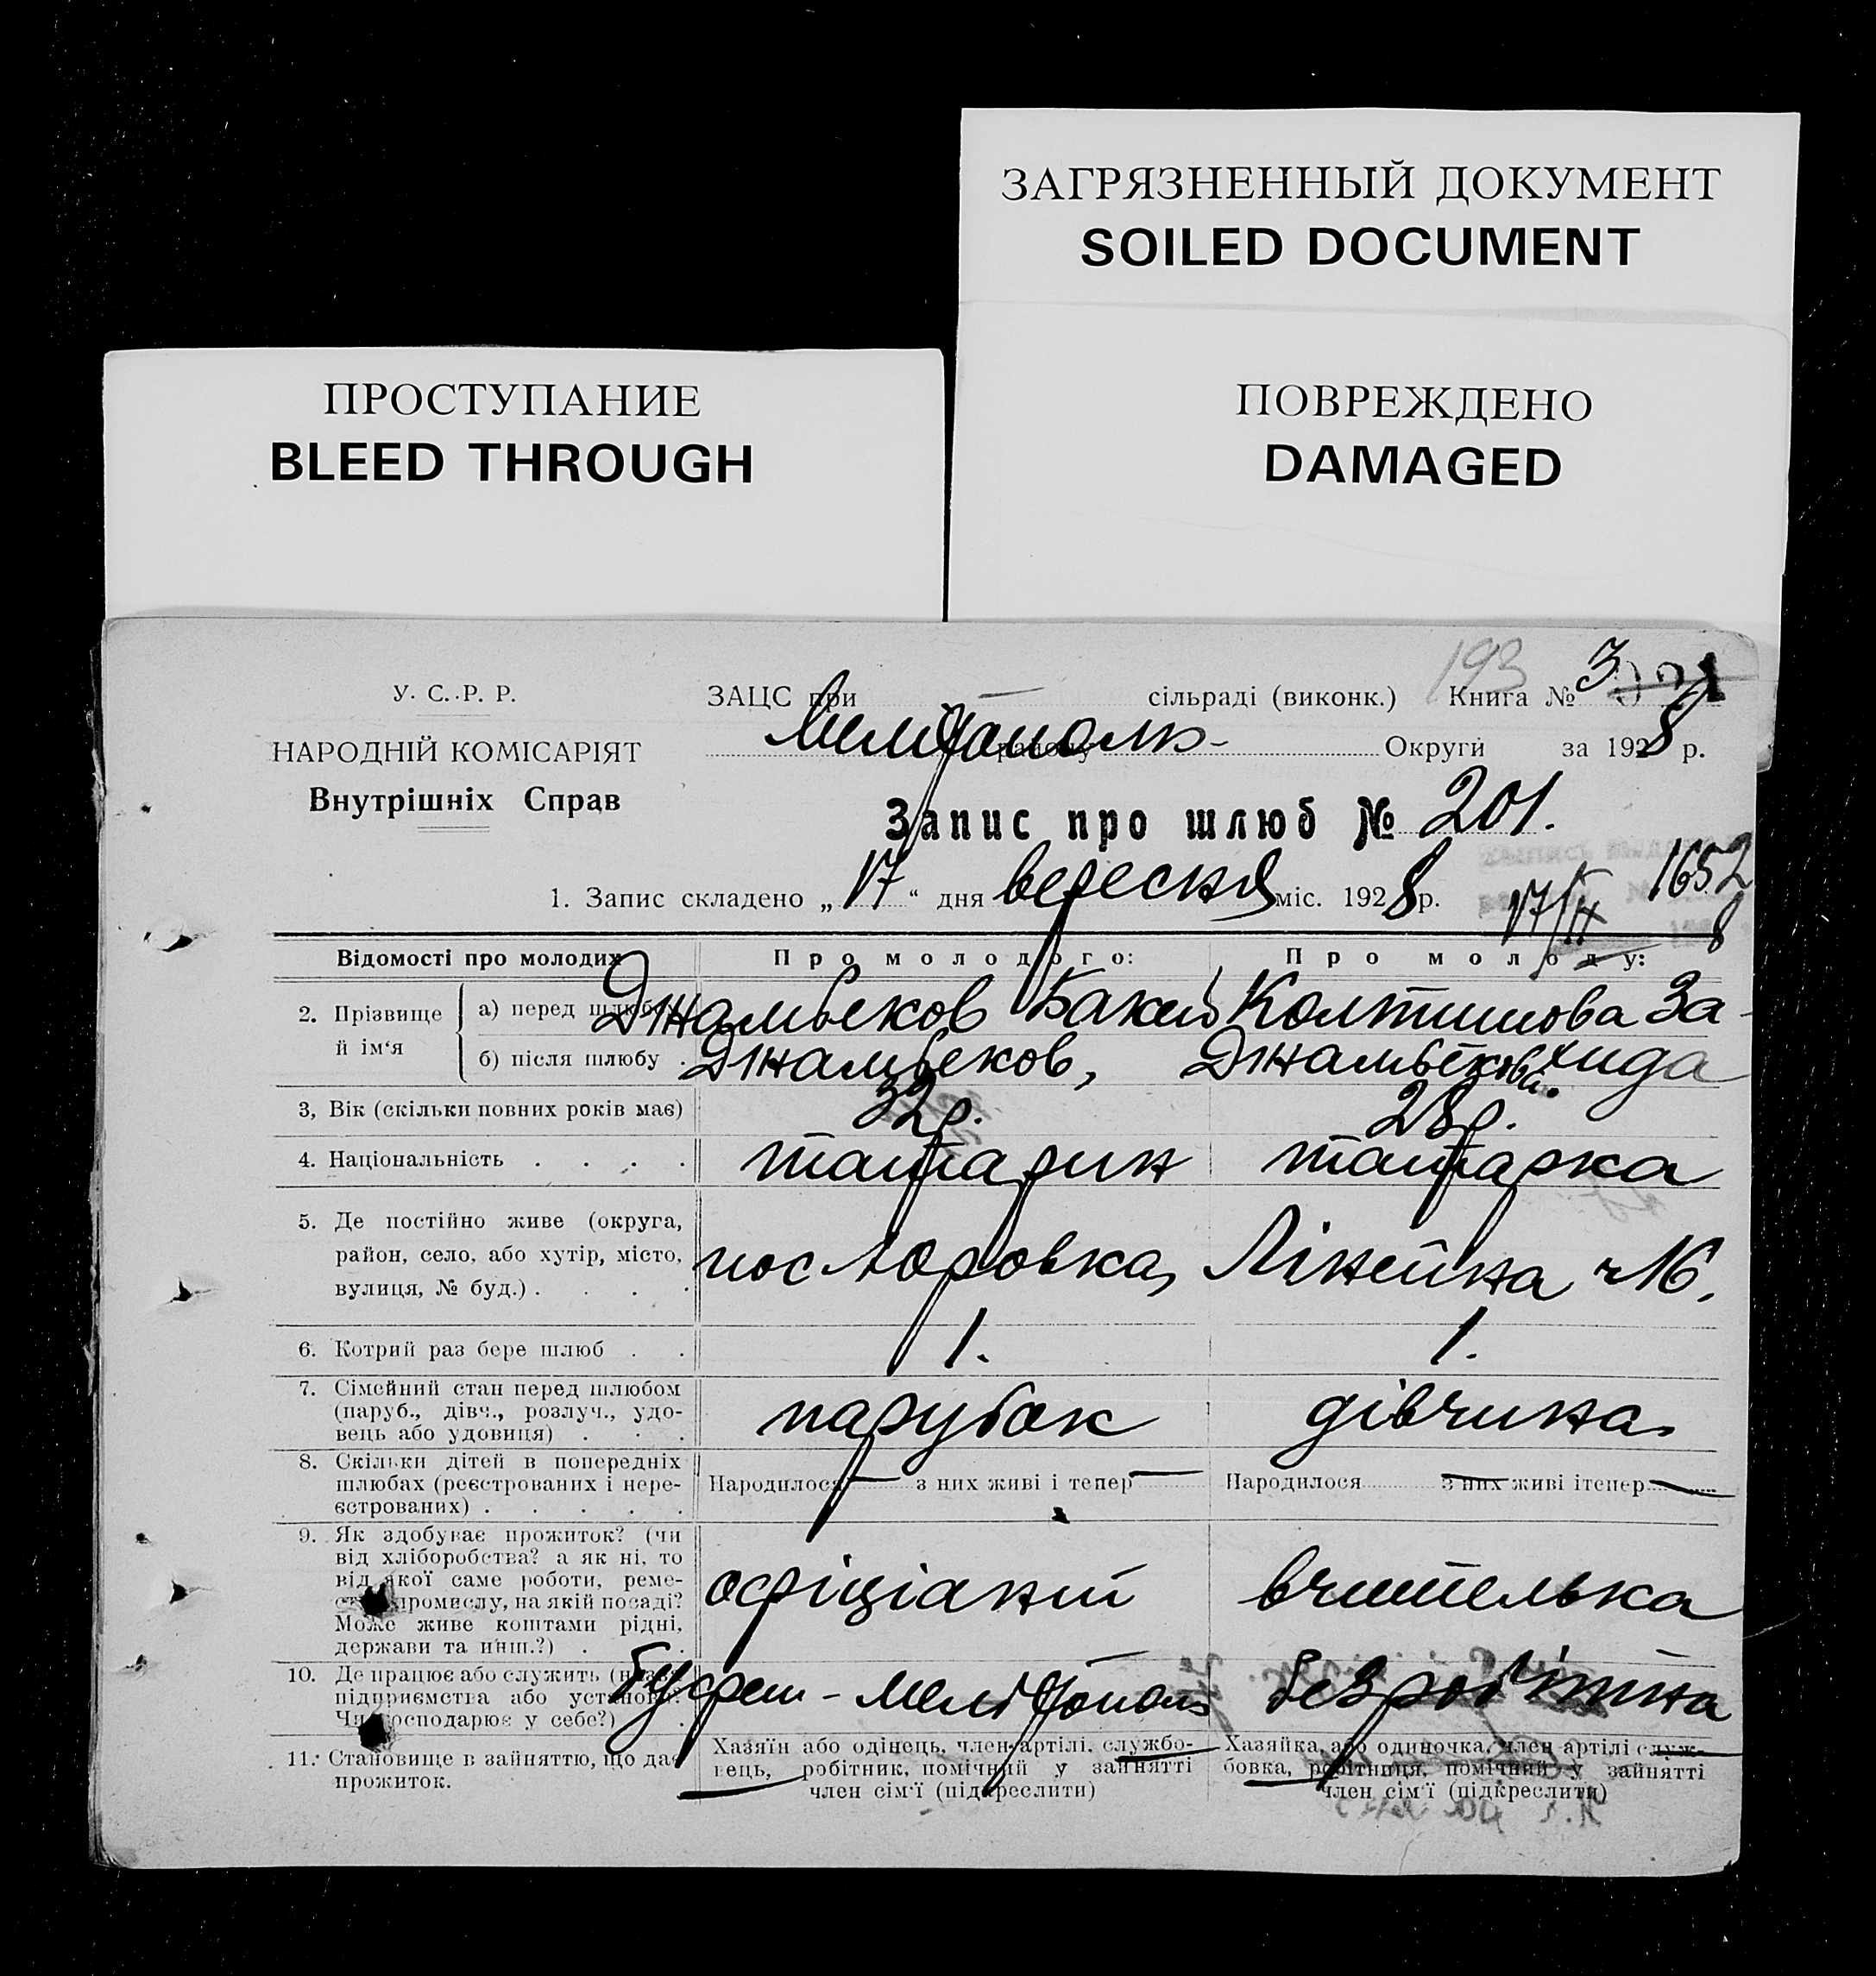 ЗАГРЯЗНЕННЫЙ ДОКУМЕНТ
SOILED DOCUMENT
ПРОСТУПАНИЕ
BLEED THROUGH
ПОВРЕЖДЕНО
DAMAGED
193
У. С. Р. Р.
НАРОДНІЙ КОМІСАРІЯТ
Внутрішніх Справ
ЗАЦС при — сільраді (виконк.) Книга № 3
Мелітополь району Округи за 1928 р.
Запис про шлюб № 201.
1. Запис складено „17“ дня вересня міс. 1928 р.
1652
17/IX 8
Відомості про молодих Про молодого: Про молоду:
2. Прізвище й ім‘я
а) перед шлюбом Джамбеков Бакий Колтишова За-
б) після шлюбу . Джамбеков, Джамбекова. хида
3, Вік (скільки повних років має) 32 р. 28 р.
4. Національність . . . . . татарин татарка
5. Де постійно живе (округа,
район, село, або хутір, місто,
вулиця, № буд.) . . . .
пос Юровка, Лінейна ч 16.
6. Котрий раз бере шлюб . . 1. 1.
7. Сімейний стан перед шлюбом
(паруб., дівч., розлуч., удо-
вець або удовиця) . . .
парубок дівчина
8. Скільки дітей в попередніх
шлюбах (реєстрованих і нере-
єстрованих) . . . . .
Народилося — з них живі і тепер — Народилося з них живі ітепер —
9. Як здобуває прожиток? (чи
від хліборобства? а як ні, то
від якої саме роботи, реме-
промислу, на якій посаді?
Може живе коштами рідні,
держави та инш.?) . .
офіціант вчителька
10. Де працює або служить (назва
підприємства або установи?
Чи господарює у себе?) .
буфет - Мелітополь безробітна
11. Становище в зайняттю, що дає
прожиток.
Хазяїн або одінець, член артілі, службо-
вець, робітник, помічний у зайнятті
член сім‘ї (підкреслити)
Хазяйка, або одиночка, член артілі служ-
бовка, робітниця, помічний у зайнятті
член сім‘ї (підкреслити)